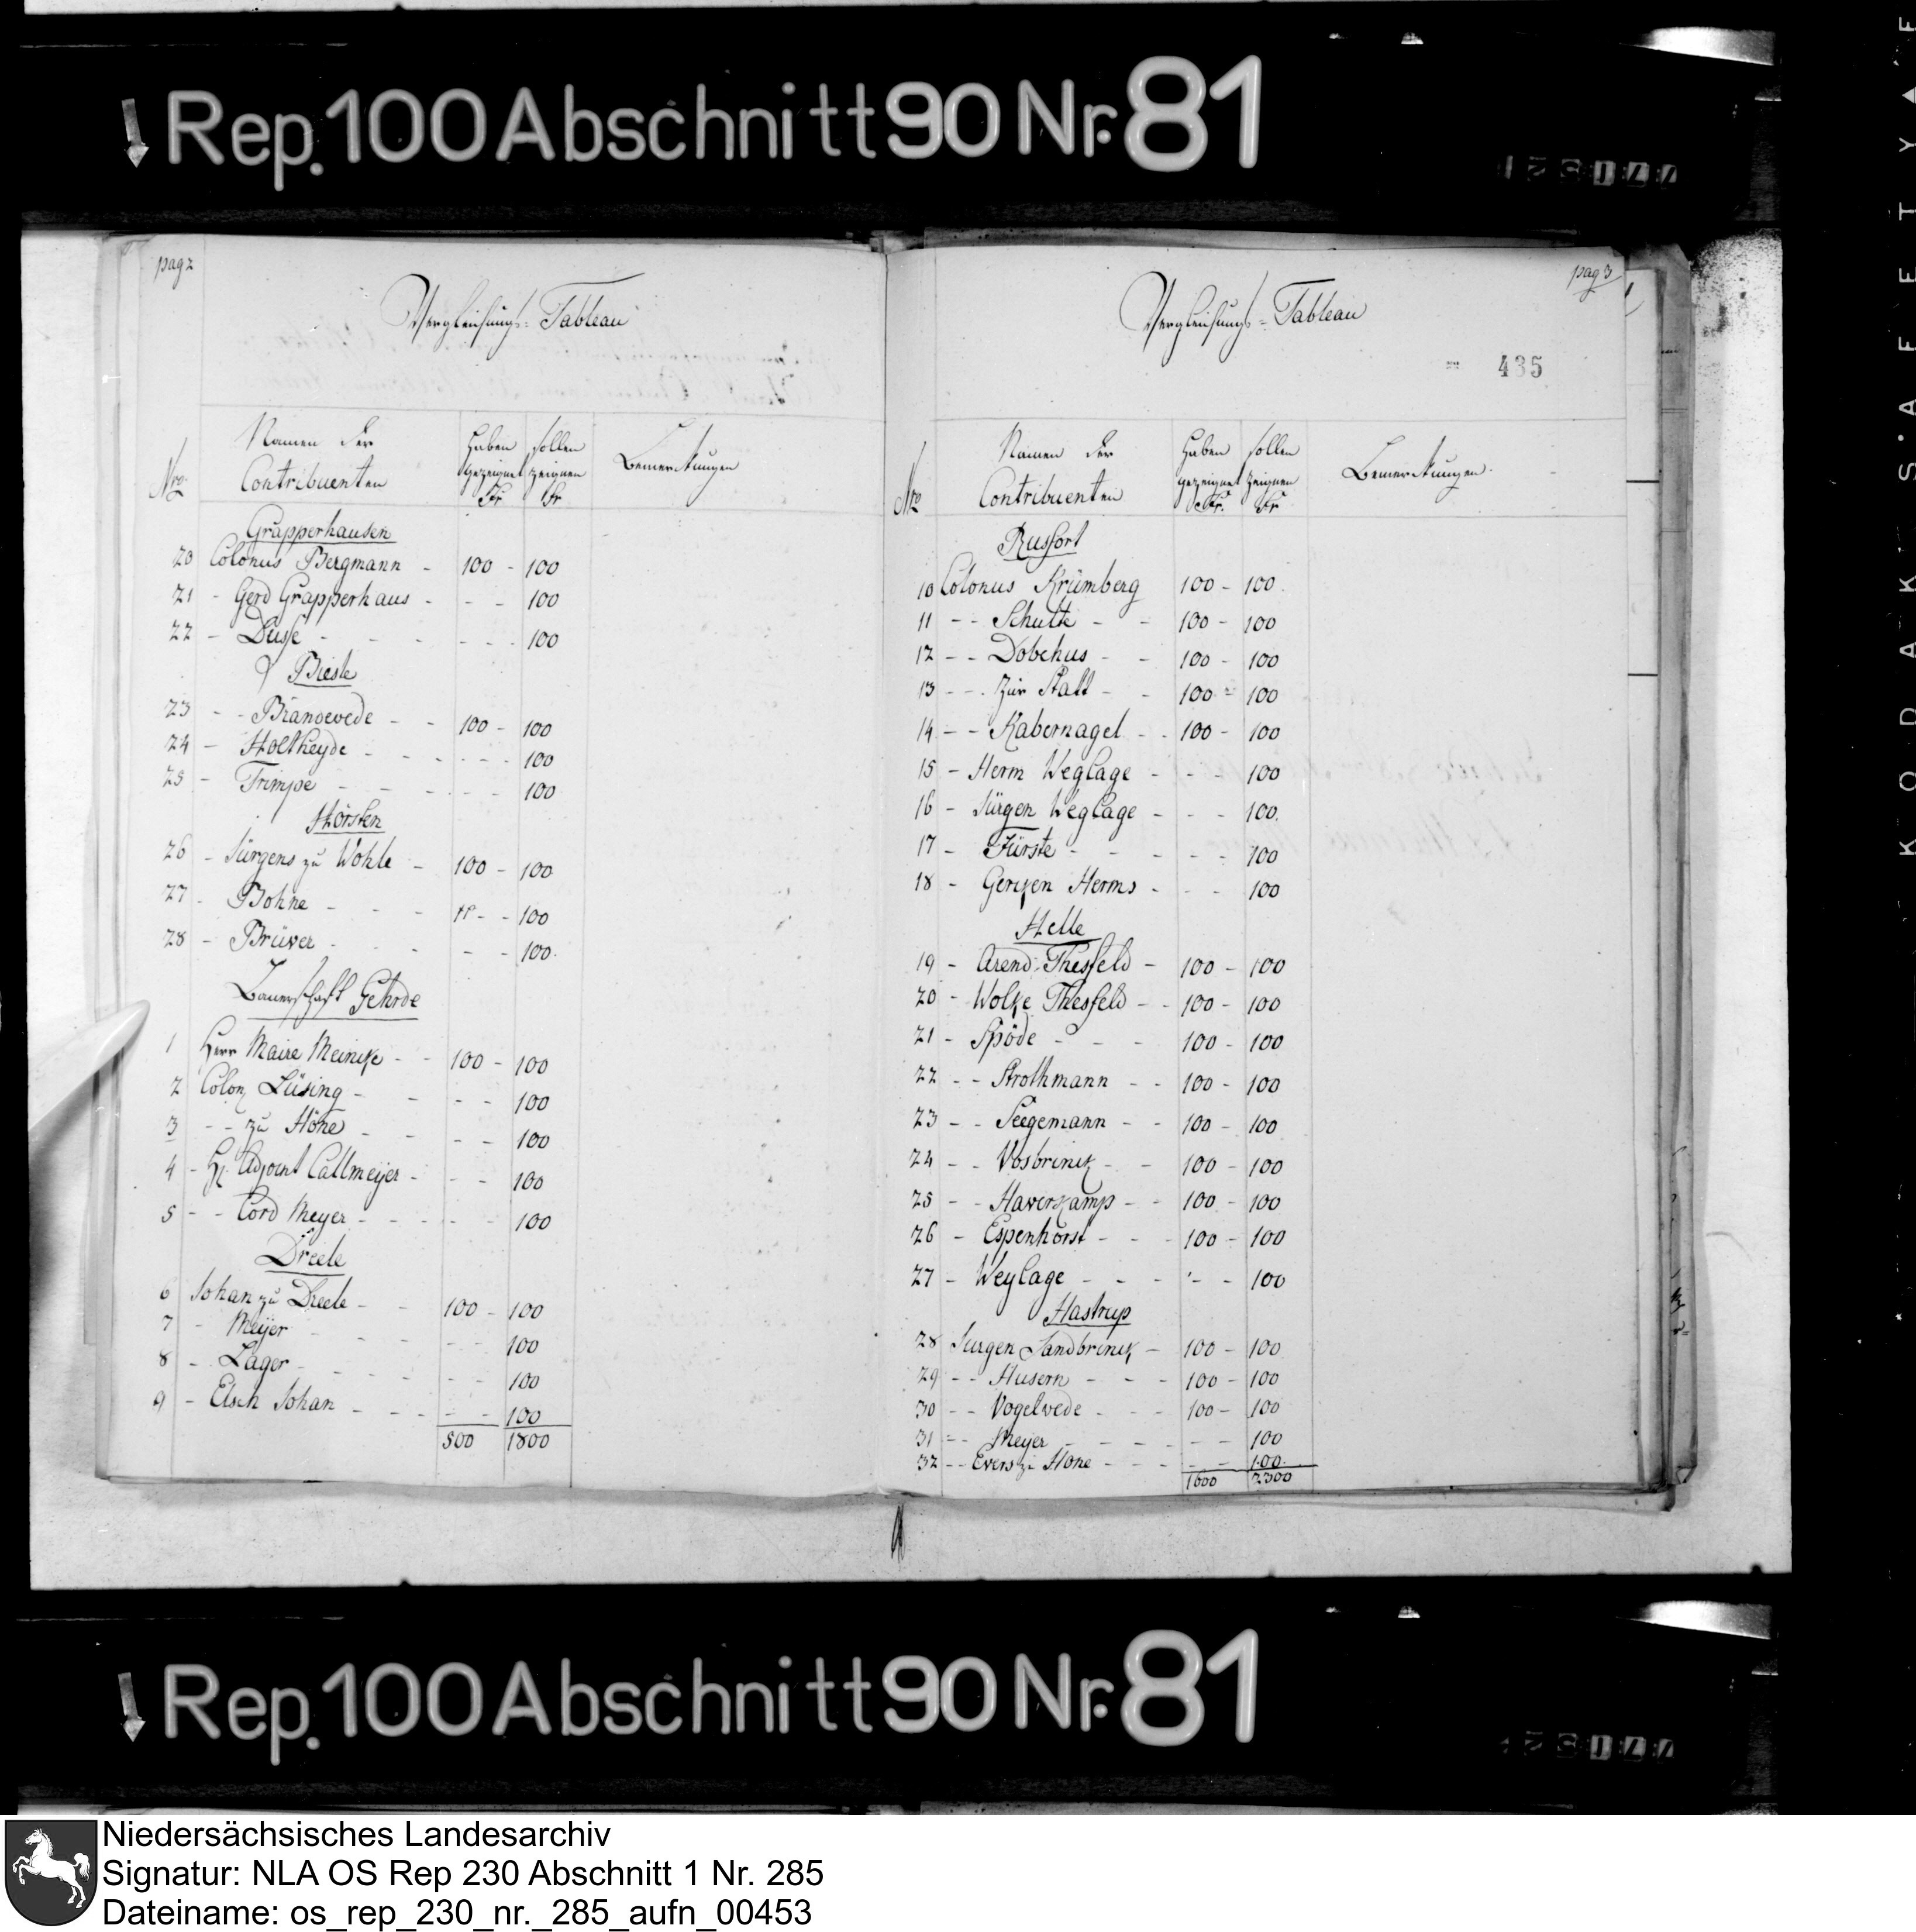 Rep. 100 Abschnitt 90 Nr. 81
pag 2
Vergleichungs-Tableau
Nro.
Namen der Contributenten
haben gezeignet Fr
sollen zeignen Fr.
Bemerckungen
Grapperhausen
20 Colonus Bergmann - 100 - 100
21 - Gerd Grapperhaus - - - 100
22 - Dusse - - - - - - 100
Bieste
23 - - Brandewede - - 100 - 100
24 - Holtheyde - - - - - 100
25 - Trimpe - - - - - 100
Hörsten
26 - Jürgens zu Wohle - 100 - 100
27 - Bohne - - - - - 100
28 - Brüwer - - - - 100
Bauerschaft Gehrde
1 Herr Maire Meincke - - 100 - 100
2 Colon Lüsing - - - - 100
3 - - zu Höne - - - - 100
4 - H. Adjoint Callmeyer - - - 100
5 - - Cord Meyer - - - - - 100
Dreele
6 Johan zu Dreele - - 100 - 100
7 - Meyer - - - - - 100
8 - Lager - - - - - - 100
9 - Elsch Johan - - - - - 100
500 1800
pag 3
Vergleichungs-Tableau
435
Nro
Namen der Contribuenten
haben gezeignet Fr.
sollen zeignen Fr
Bemerckungen.
Russort
10 Colonus Krümberg 100 - 100
11 - - Schulte - - 100 - 100
12 - - Dobehus - - 100 - 100
13 - - Zur Stall - - 100 - 100
14 - - Kabernagel - - 100 - 100
15 - Herm Weglage - - - 100
16 - Jürgen Weglage - - - 100
17 - Fürste - - - - - 100
18 - Gercken Herms - - - 100
Helle
19 - Arend Thesfeld - 100 - 100
20 - Wolke Thesfeld - - 100 - 100
21 - Spöde - - - 100 - 100
22 - - Strothmann - - 100 - 100
23 - - Seegemann - - 100 - 100
24 - - Vosbrinck - - 100 - 100
25 - - Haverkamp - - 100 - 100
26 - Espenhorst - - - 100 - 100
27 - Weylage - - - - - 100
Hastrup
28 Jurgen Sandbrinck - 100 - 100
29 - - Husern - - - 100 - 100
30 - - Vogelwede - - - 100 - 100
31 - - Meyer - - - - - 100
32 - - Evers zu Hone - - - - - 100
1600 2300
Rep. 100 Abschnitt 90 Nr. 81
KODAK SAFETY
Niedersächsisches Landesarchiv
Signatur: NLA OS Rep 230 Abschnitt 1 Nr. 285
Dateiname: os_rep_230_nr._285_aufn_00453